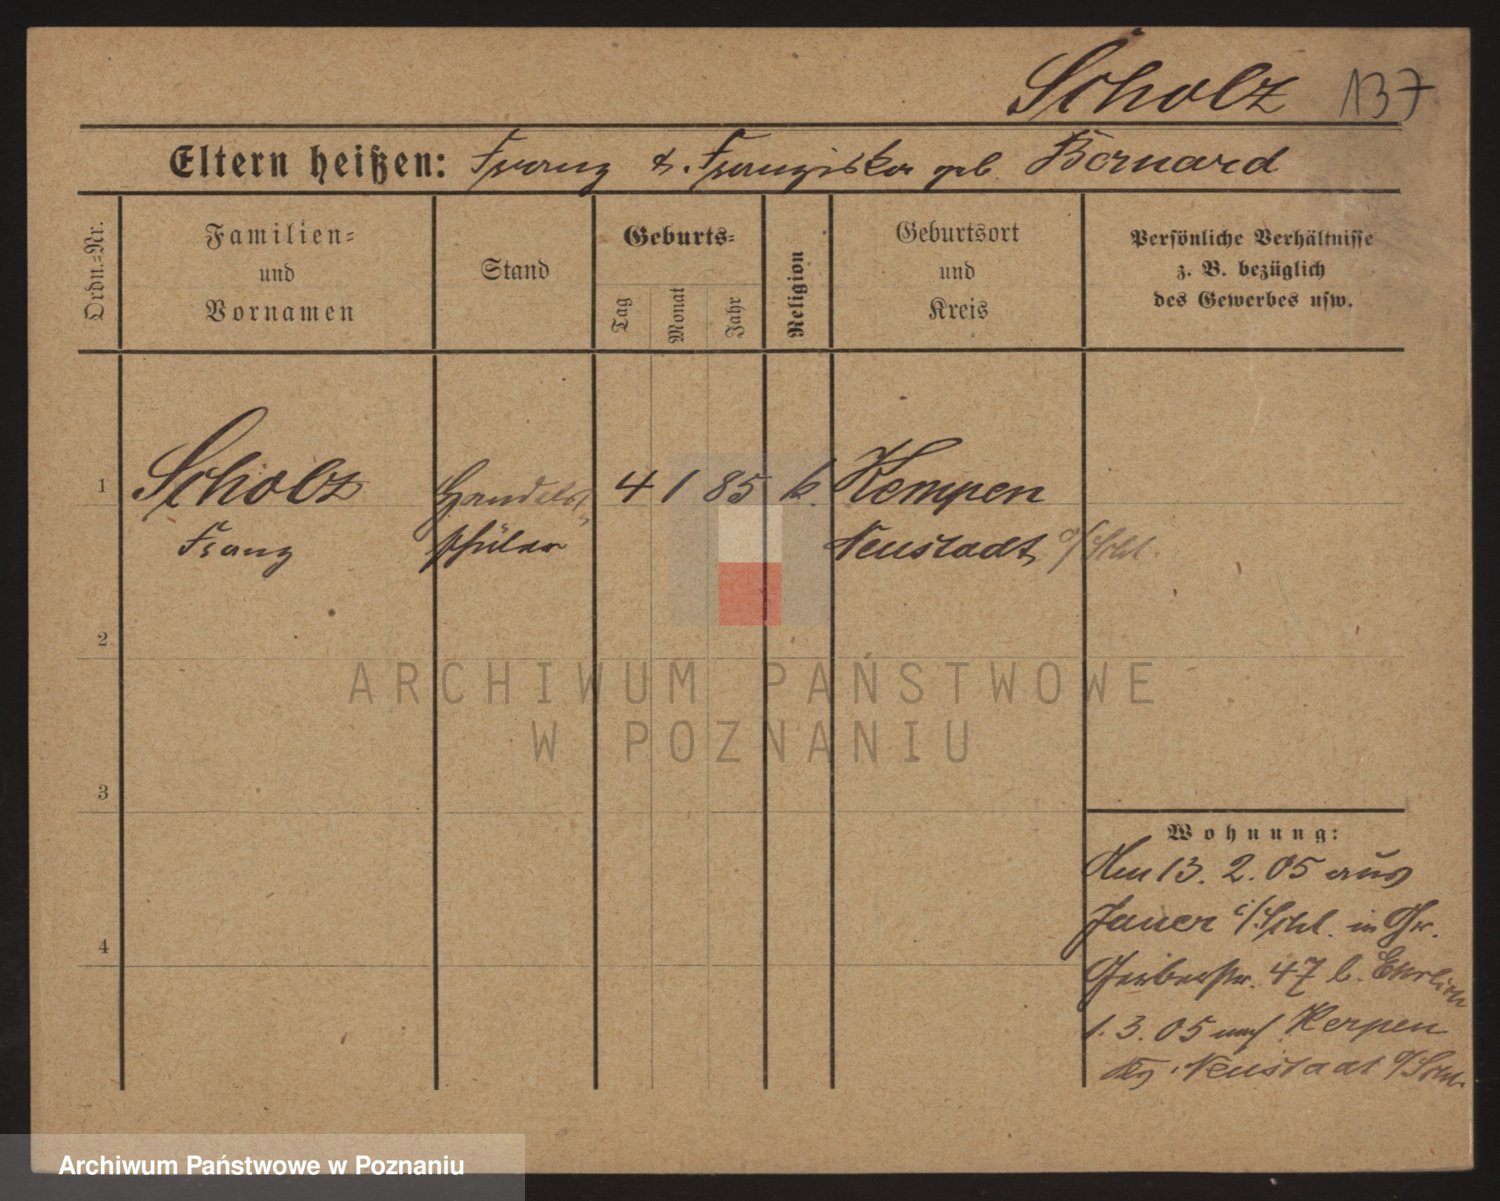 Scholz 137
Eltern heißen: Franz & Franziska geb. Bernard
Ordn.-Nr.
Familien-
und
Vornamen
Stand
Geburts-
Tag
Monat
Jahr
Religion
Geburtsort
und
Kreis
Persönliche Verhältnisse
z. B. bezüglich
des Gewerbes usw.
1 Scholz Handels- 4 1 85 k. Kempen
Franz schüler Neustadt o/Schl.
2
3
4
Wohnung:
Am 13. 2. 05 aus
Jauer i/Schl. in Gr.
Gerberstr. 47 b. Ehrlich
1. 3. 05 nach Kerpen
Neustadt o/Schl.
ARCHIWUM PAŃSTWOWE
W POZNANIU
Archiwum Państwowe w Poznaniu